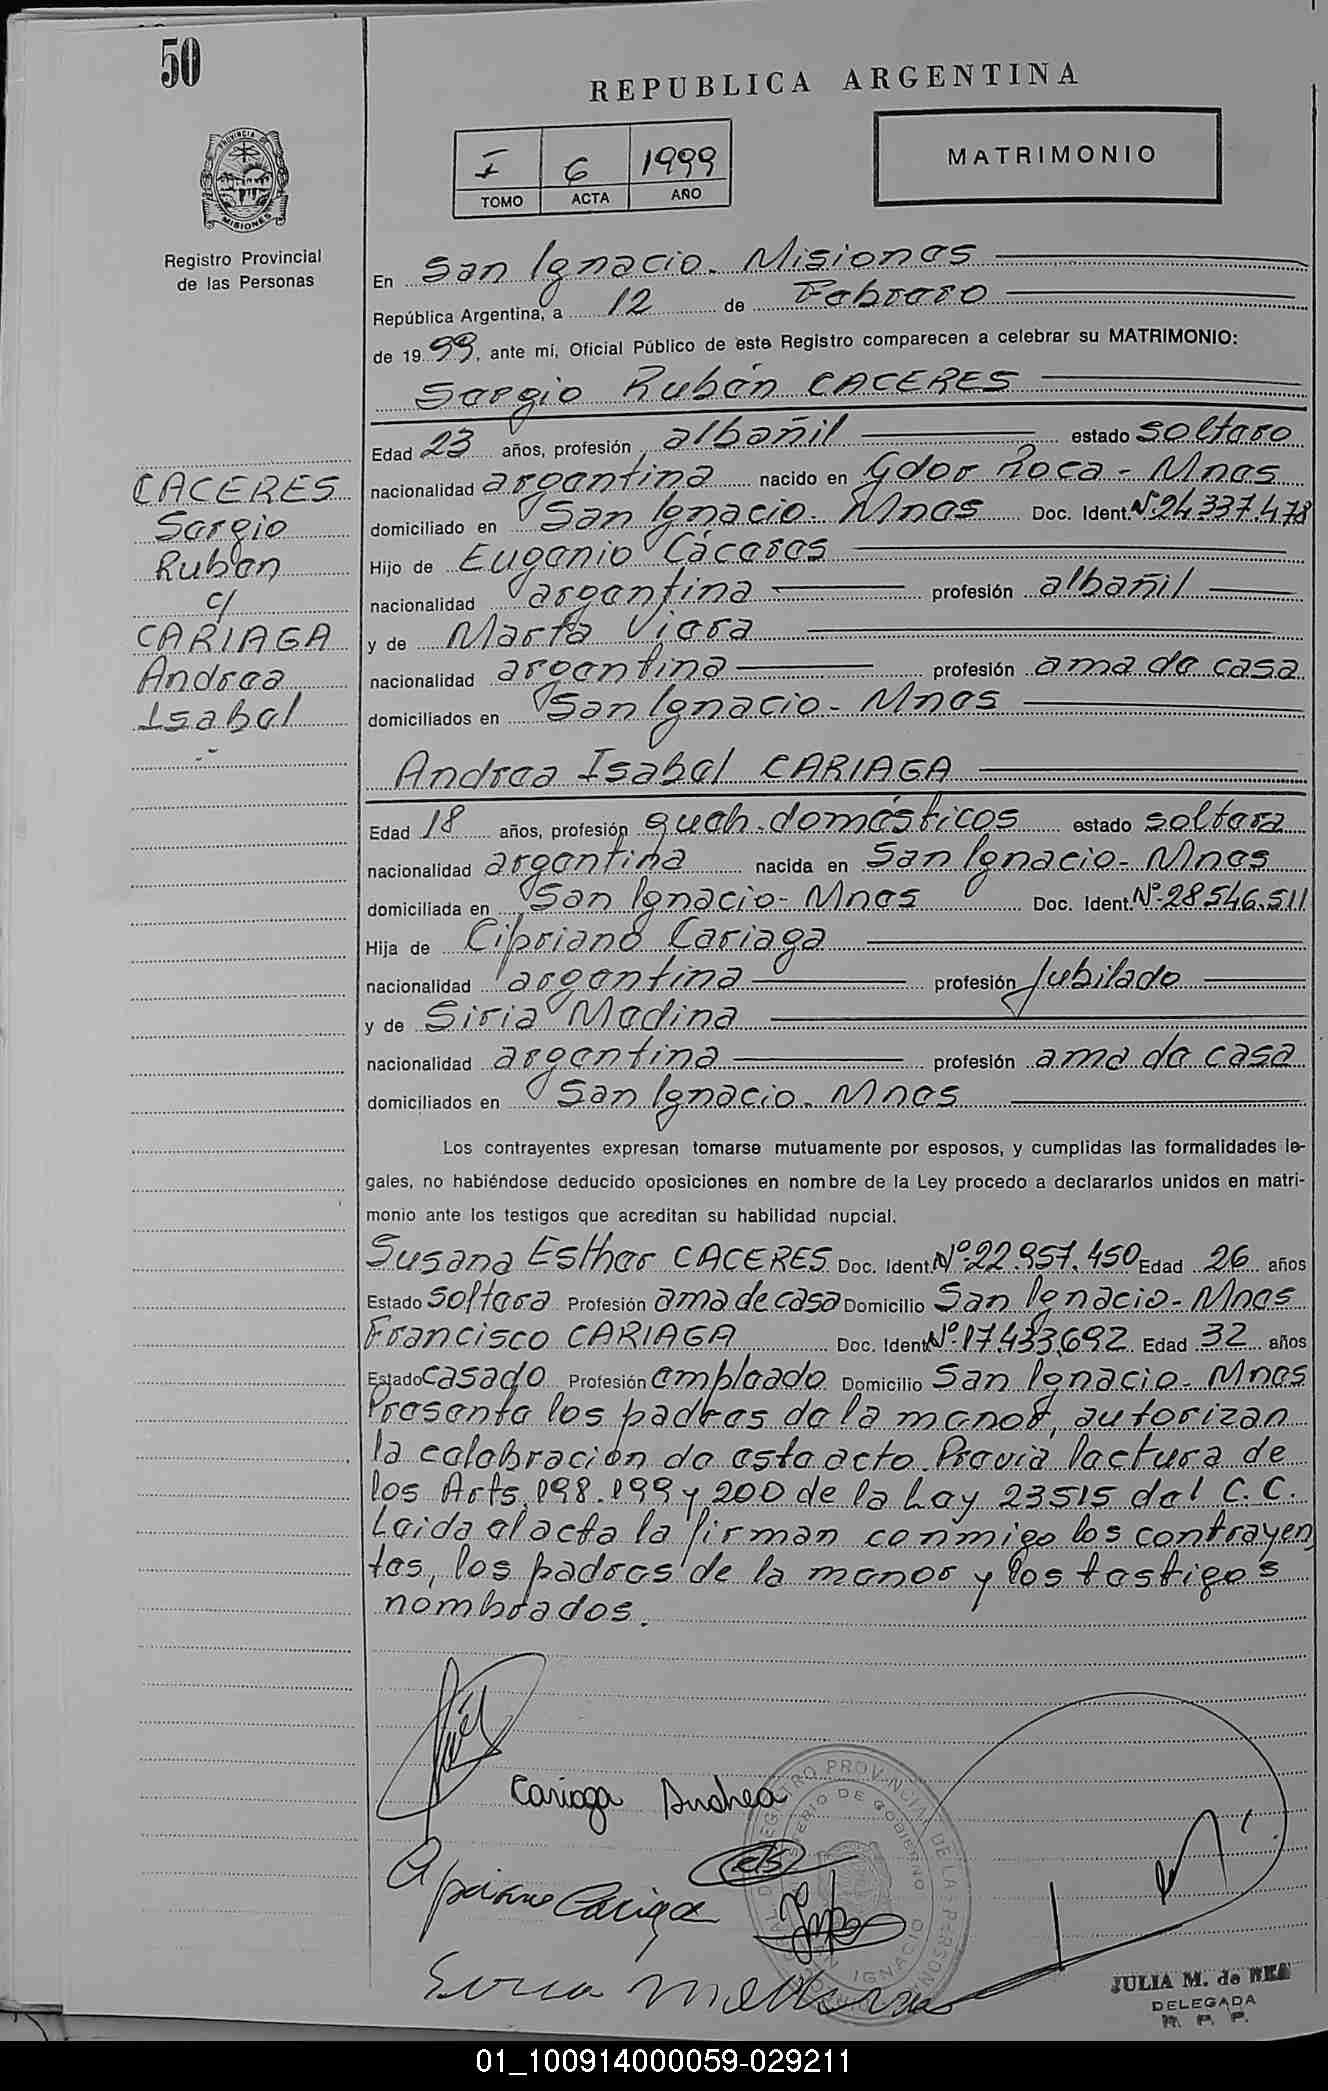 50
REPUBLICA ARGENTINA
MATRIMONIO
I 6 1999
TOMO ACTA AÑO
PROVINCIA DE MISIONES
Registro Provincial
de las Personas
En San Ignacio. Misiones
República Argentina, a 12 de Febrero
de 1999, ante mí, Oficial Público de este Registro comparecen a celebrar su MATRIMONIO:
Sergio Rubén CACERES
Edad 23 años, profesión albañil estado soltero
CACERES
nacionalidad argentina nacido en Gdor Roca - Mnes
Sergio
domiciliado en San Ignacio. Mnes Doc. Ident. Nº 24.337.478
Ruben
Hijo de Eugenio Cáceres
c/
nacionalidad argentina profesión albañil
CARIAGA
y de Marta Viera
Andrea
nacionalidad argentina profesión ama de casa
Isabel
domiciliados en San Ignacio - Mnes
Andrea Isabel CARIAGA
Edad 18 años, profesión queh. domésticos estado soltera
nacionalidad argentina nacida en San Ignacio - Mnes
domiciliada en San Ignacio - Mnes Doc. Ident. Nº 28.546.511
Hija de Cipriano Cariaga
nacionalidad argentina profesión Jubilado
y de Siria Medina
nacionalidad argentina profesión ama de casa
domiciliados en San Ignacio. Mnes
Los contrayentes expresan tomarse mutuamente por esposos, y cumplidas las formalidades le-
gales, no habiéndose deducido oposiciones en nombre de la Ley procedo a declararlos unidos en matri-
monio ante los testigos que acreditan su habilidad nupcial.
Susana Esther CACERES Doc. Ident. Nº 22.957.450 Edad 26 años
Estado soltera Profesión ama de casa Domicilio San Ignacio - Mnes
Francisco CARIAGA Doc. Ident. Nº 17.433.692 Edad 32 años
Estado casado Profesión empleado Domicilio San Ignacio - Mnes
Presente los padres de la menor, autorizan
la celebración de este acto. Previa lectura de
los Arts. 198. 199 y 200 de la Ley 23515 del C. C.
Leida el acta la firman conmigo los contrayen
tes, los padres de la menor y los testigos
nombrados.
Cariaga Andrea
Cipriano Cariaga
Siria Medina
JULIA M. de
DELEGADA
R. P. P.
01_100914000059-029211